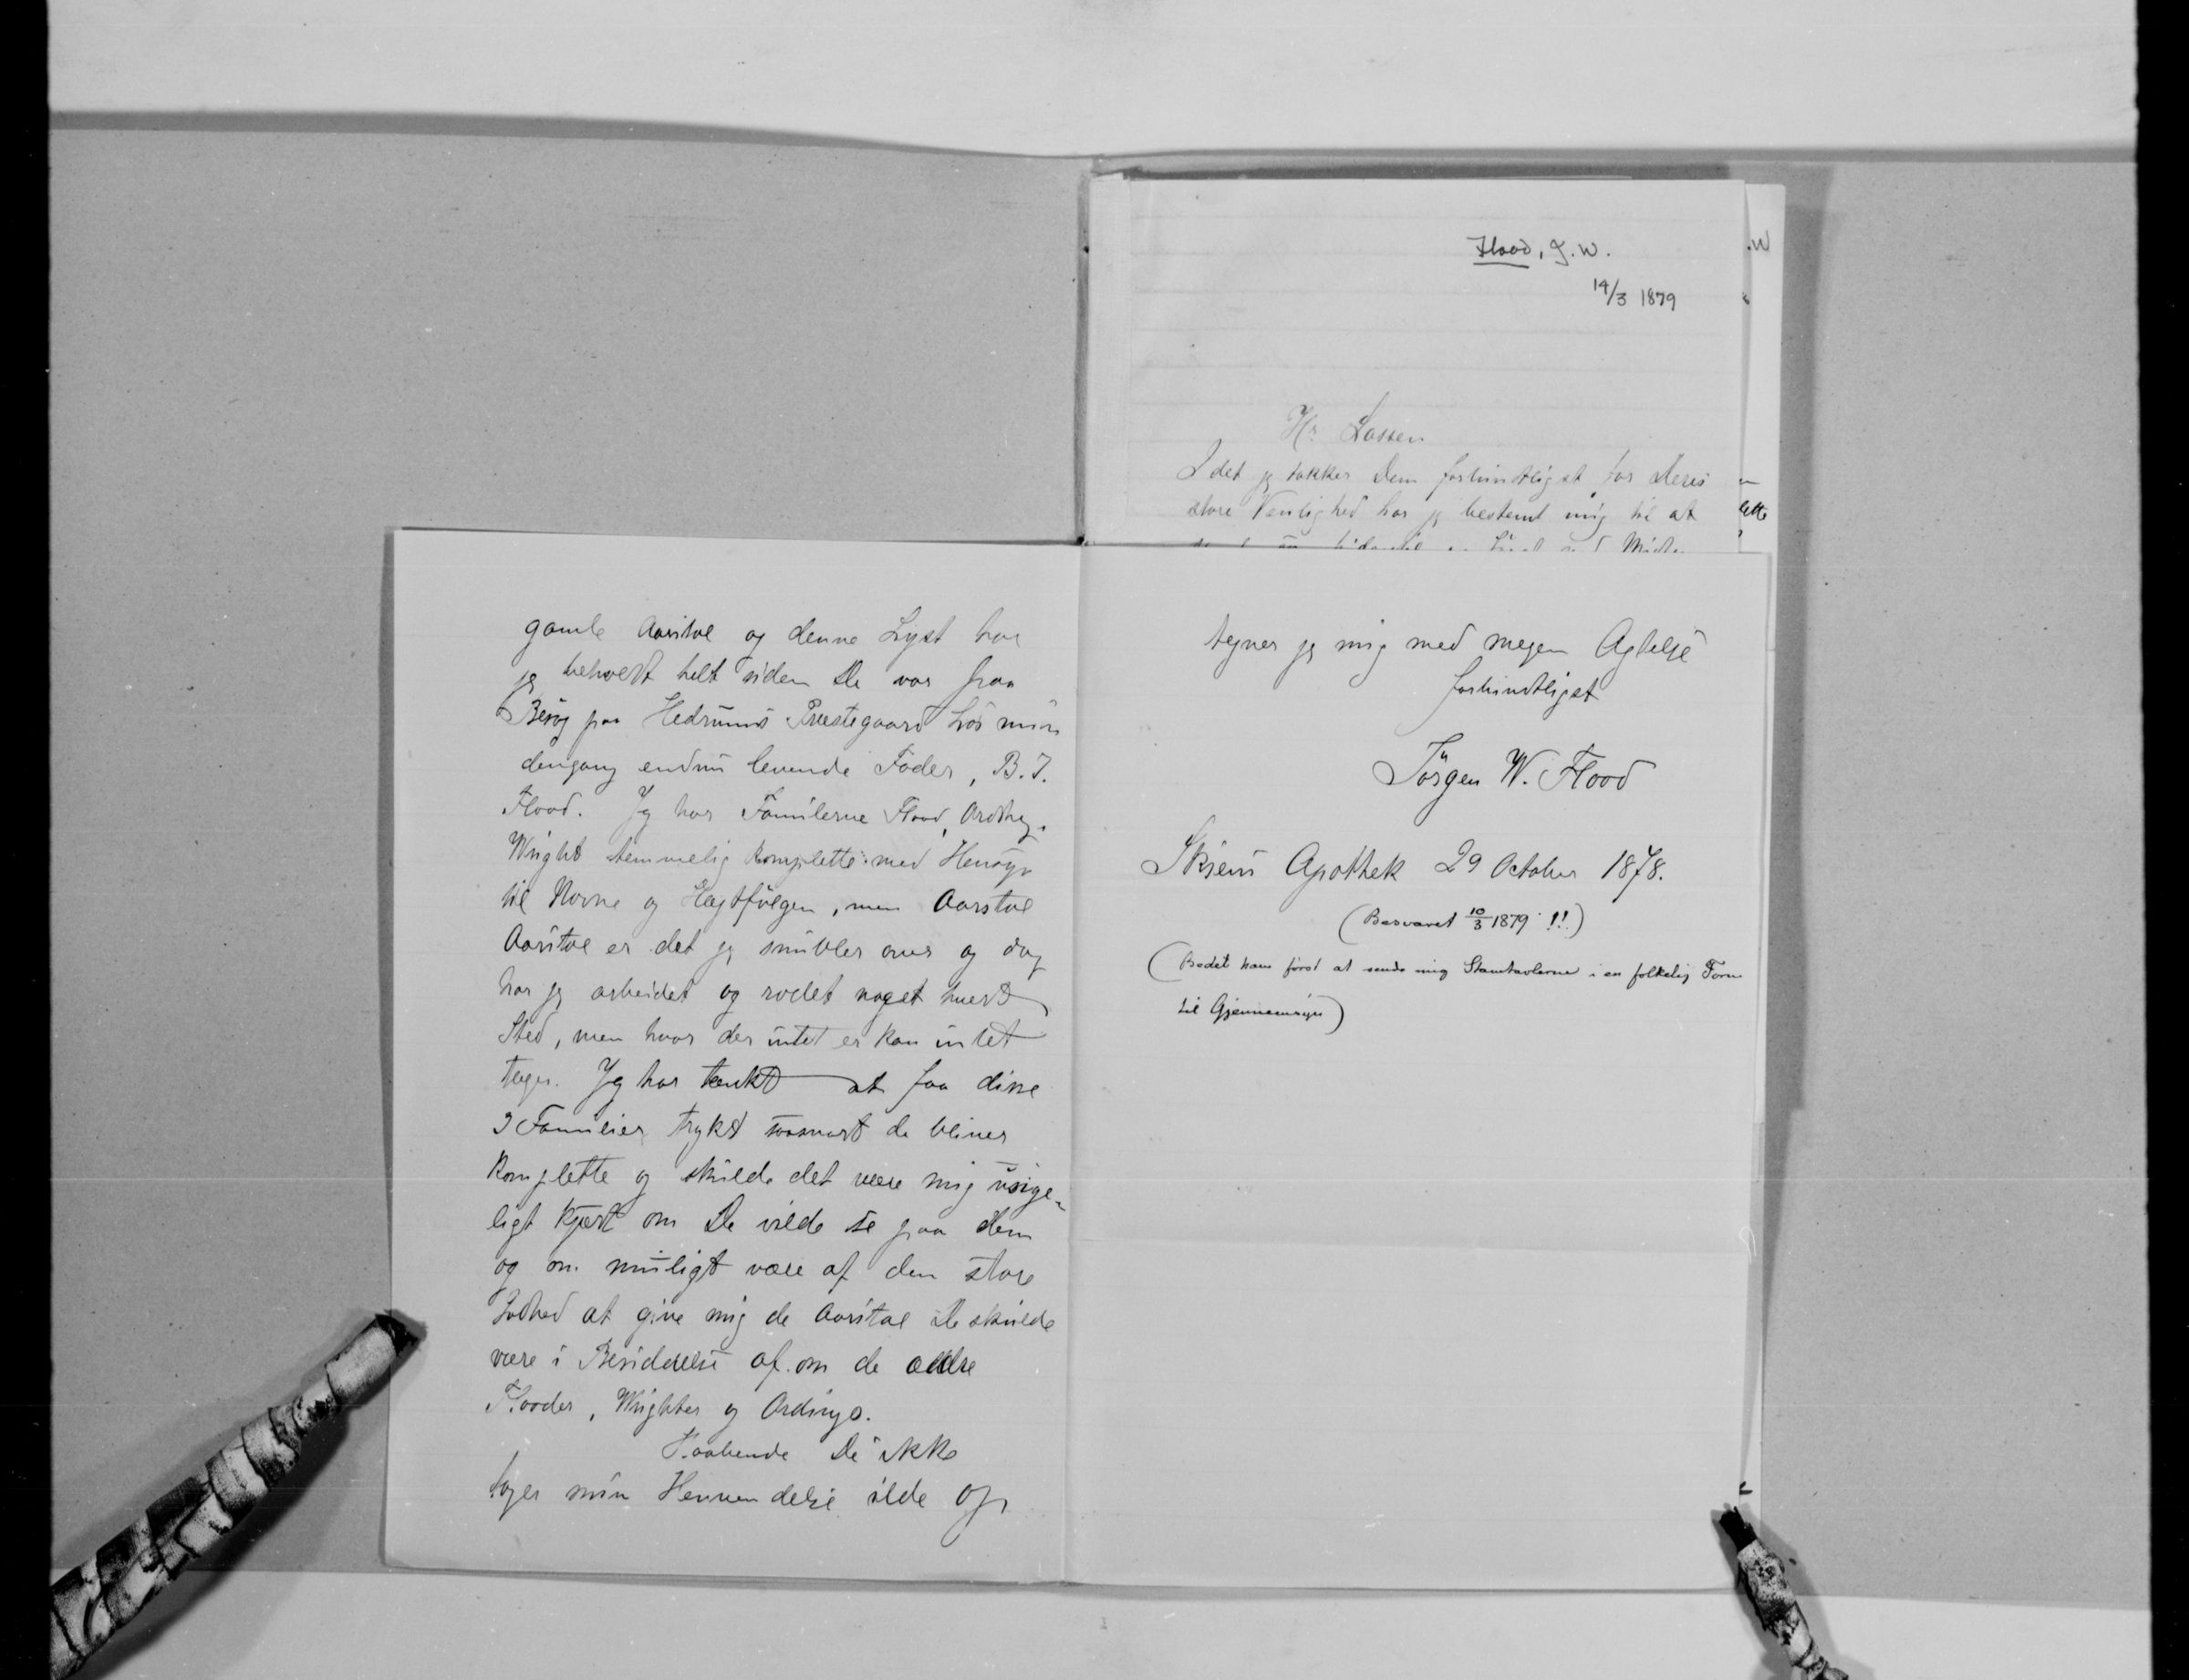 Flood, J.W.
14/3 1879
Hr Lassen
I det jeg takker Dem forbindtligst for Deres
store Venlighed har jeg bestemt mig til at
gamle Aarstal og denne Lyst har
jeg beholdt helt siden De var paa
Besøg paa Hedrums Præstegaard hos min
dengang endnu levende Fader, B. J.
Flood. Jeg har Familerne Flood, Ording,
Wright temmelig komplette med Hensyn
til Navne og Slægtfølgen, men Aarstal
Aarstal er det jeg snubler over og dog
har jeg arbeidet og rodet noget hvert
Sted, men hvor der intet er kan intet
tages. Jeg har tænkt at faa disse
3 Familier trykt saasnart de bliver
komplette og skulde det være mig usige-
ligt kjært om De vilde se paa dem
og om muligt være af den store
Godhed at give mig de Aarstal De skulde
være i Besiddelse af om de ældre
Flooder, Wrighter og Ordings.
Haabende De ikke
tager min Henvendelse ilde op
tegner jeg mig med megen Agtelse
forbindtligst
Jörgen W. Flood
Skiens Apothek 29 October 1878.
(Besvaret 10/3 1879 !!)
(Bedet ham først at sende mig Stamtavlerne i en folkelig Form
til Gjennemsyn)